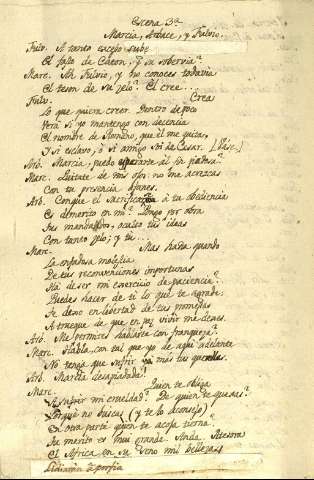 Escena 3ª
Marcia, Arbace, y Fulvio.
Fulv. A tanto exceso sube
El falto de Caton, y su sobervia?
Marc. Ah Fulvio, y no conoces todavia
El teson de su zelo? El cree...
Fulv. Crea
Lo que quiera creer. Dentro de poco
Verá si yo mantengo con decencia
El nombre de Romano, que él me quita,
Y si esclavo, ó si amigo soi de Cesar. [Vase.]
Arb. Marcia, puedo esperarte al fin piadosa?
Marc. Quitate de mis ojos: no me acrezcas
Con tu presencia afanes.
Arb. Conque el sacrificarme á tu obediencia
Es demerito en mi? Pongo por obra
Tus mandatos, oculto tus ideas
Con tanto zelo; y tú...
Marc. Mas hasta quando
La enfadosa molestia
De tus reconvenciones importunas
Ha de ser mi exercicio de paciencia?
Puedes hacer de ti lo que te agrade.
Te dexo en libertad de tus promesas
A trueque de que en paz vivir me dexes.
Arb. Me permites hablarte con franqueza?
Marc. Habla, con tal que yo de aqui adelante
No tenga que sufrir ya mas tus querellas.
Arb. Marcia desapiadada!
Marc. Quien te obliga
A sufrir mi crueldad? De quien te quexas?
Porqué no buscas (y te lo aconsejo)
En otra parte quien te acoja tierna?
Tu merito es muy grande. Anda. Atesora
El Africa en su seno mil bellezas
Lidiarán á porfia